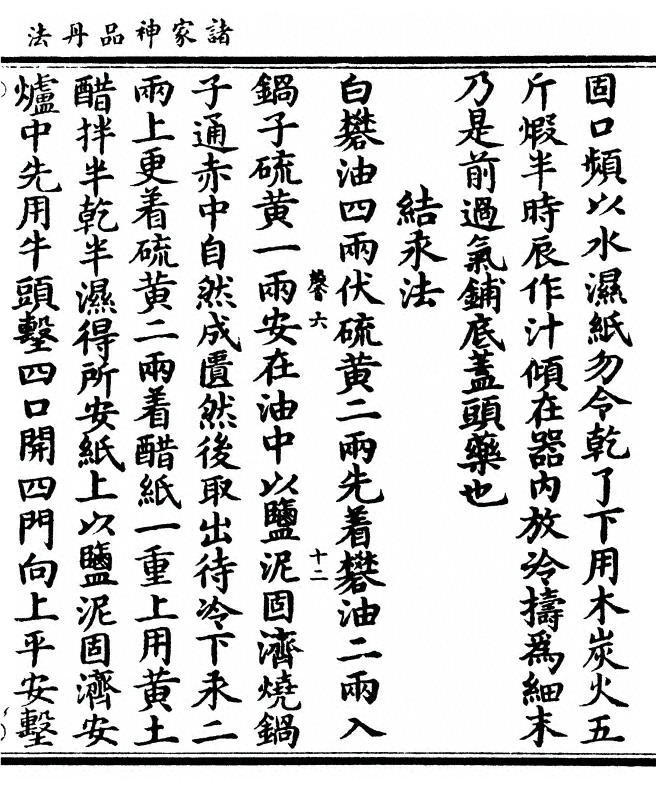 諸家神品丹法
固口頻以水濕紙勿令乾了下用木炭火五
斤煆半時辰作汁傾在器内放冷擣為細末
乃是前過氣鋪底蓋頭藥也
結汞法
白礬油四兩伏硫黄二兩先着礬油二兩入
馨六
十二
鍋子硫黄一兩安在油中以鹽泥固濟燒鍋
子通赤中自然成匱然後取出待冷下汞二
兩上更着硫黄二兩着醋紙一重上用黄土
醋拌半乾半濕得所安紙上以鹽泥固濟安
爐中先用牛頭墼四口開四門向上平安墼